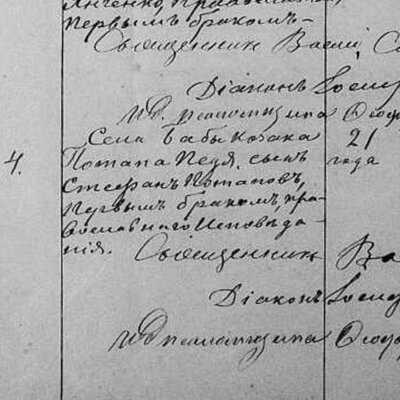 Янченко, Православнаго,
первымъ бракомъ–
Священникъ Васил
Діаконъ Іосиф
И.Д. псаломщика Феоф
Села Бабы козака 21
4. Потапа Педя, сынъ года
Стефанъ Потаповъ,
первымъ бракомъ, пра-
вославнаго исповѣда-
нія. Священникъ Ва
Діаконъ Іосиф
И.Д. псаломщика Феоф